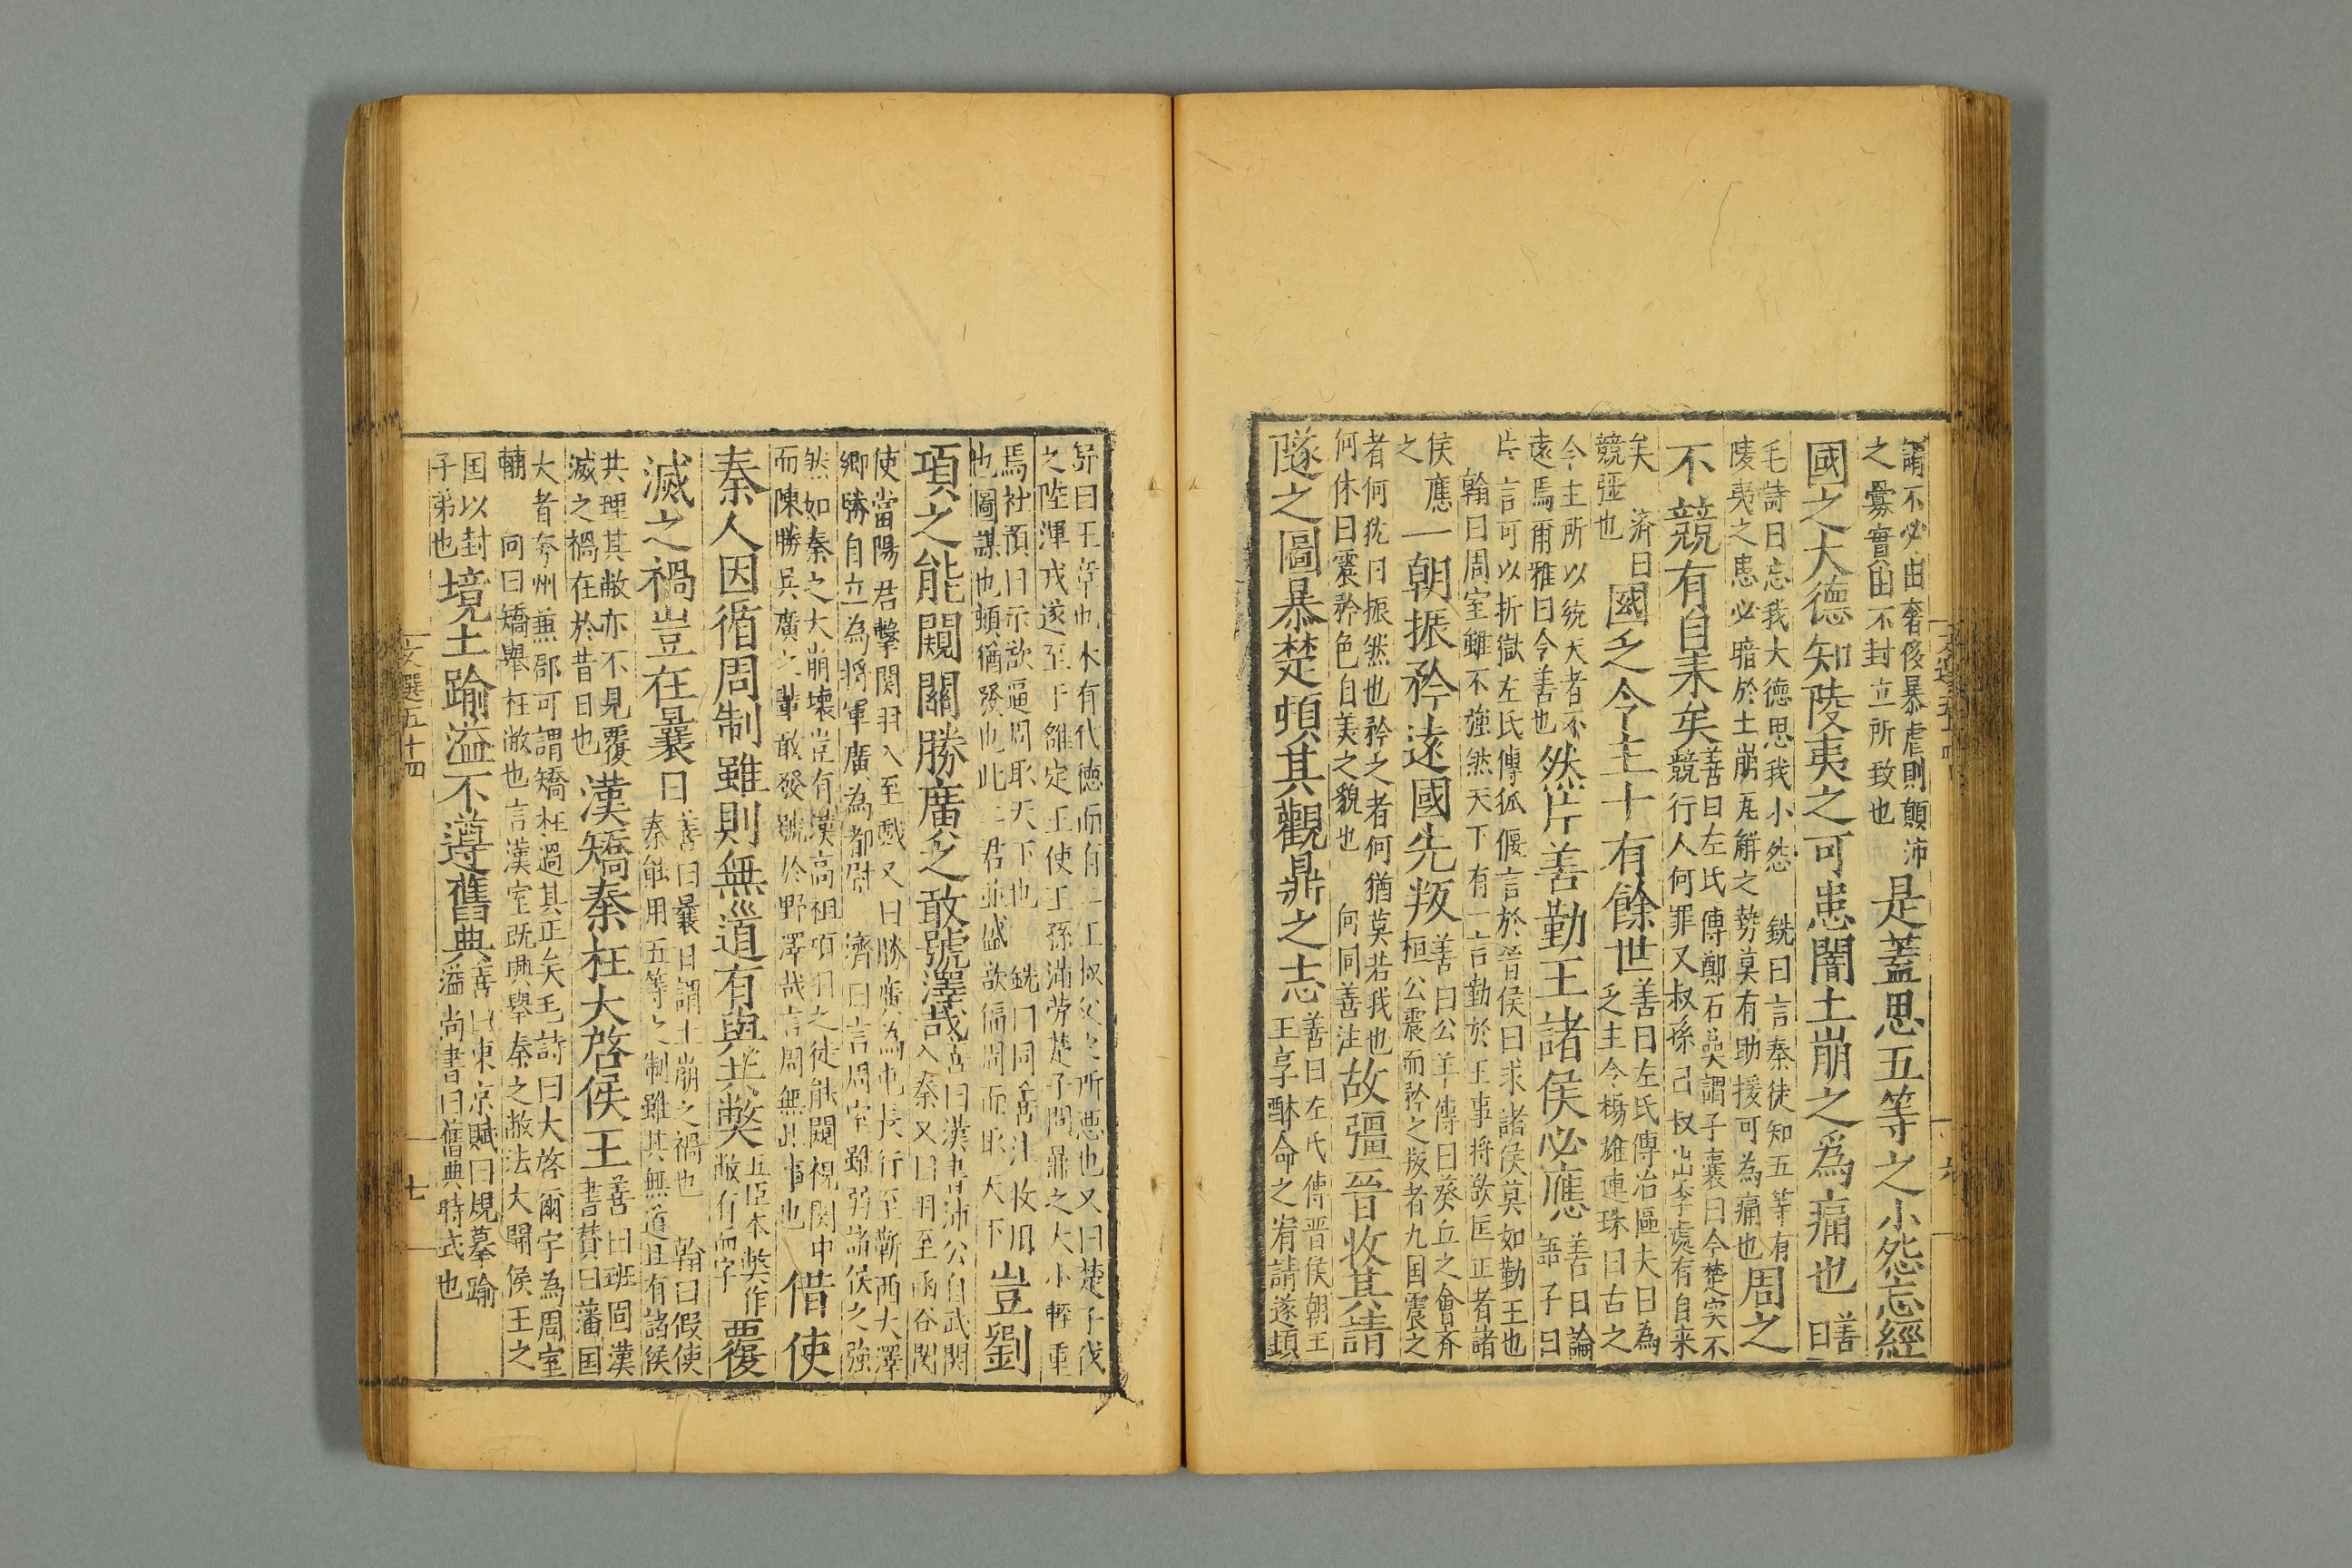 謂不必由奢侈暴虐則顛沛
之釁實由不封立所致也
是蓋思五等之小怨忘經
國之大德知陵夷之可患闇土崩之爲痛也
善曰
毛詩曰忘我大德思我小怨 銑曰言秦徒知五等有
陵夷之患必暗於土崩瓦解之勢莫有助援可為痛也
周之
不競有自来矣
善曰左氏傳鄭石㚟謂子囊曰今楚实不
競行人何罪又叔孫己叔出季處有自来
矣 濟曰
競彊也
國乏令主十有餘世
善曰左氏傳冶區夫曰為
乏主今楊雄連珠曰古之
今主所以统天者不
遠焉爾雅曰令善也
然片善勤王諸侯必應
善曰論
語子曰
片言可以折獄左氏傳狐偃言於晉侯曰求諸侯莫如勤王也
翰曰周室雖不強然天下有一言勤於王事将欲匡正者諸
侯應
之
一朝振矜遠國先叛
善曰公羊傳曰葵丘之會齐
桓公震而矜之叛者九国震之
者何犹曰振然也矜之者何猶莫若我也
何休曰震矜色自美之貌也 向同善注
故彊晉收其請
隧之圖暴楚頓其觀鼎之志
善曰左氏傳晋侯朝王
王享醴命之宥請遂頓
弗曰王章也未有代德而有二王叔父之所悪也又曰楚子伐
之陸渾戎遂至于雒定王使王孫滿劳楚子問鼎之大小輕重
焉社預曰示欲逼周取天下也 銑曰同善注收旧
也圖謀也頓猶發也此二君並盛欲偪周而取天下
豈劉
項之能闚關勝廣之敢號澤哉
善曰漢書沛公自武関
入秦又曰羽至函谷関
使當陽君擊関羽入至戯又曰勝廣為屯長行至蕲西大澤
卿勝自立為将軍廣為都尉 濟曰言周室雖弱諸侯之強
然如秦之大崩壞豈有漢高祖項羽之徒能闚視関中
而陳勝吳廣之輩敢發號於野澤哉言周無此事也
借使
秦人因循周制雖則無道有與共弊
五臣本弊作
敝有而字
覆
滅之禍豈在曩日
善曰曩日謂土崩之禍也 翰曰假使
秦能用五等之制雖其無道且有諸侯
共理其敝亦不見覆
滅之禍在於昔日也
漢矯秦枉大啓侯王
善曰班固漢
書賛曰藩国
大者夸州兼郡可謂矯枉過其正矣毛詩曰大啓爾宇為周室
輔 向曰矯舉枉敝也言漢室既興舉秦之敝法大開侯王之
国以封
子弟也
境土踰溢不遵舊典
善曰東京賦曰規摹踰
溢尚書曰舊典時式也
文選五十四
七
六